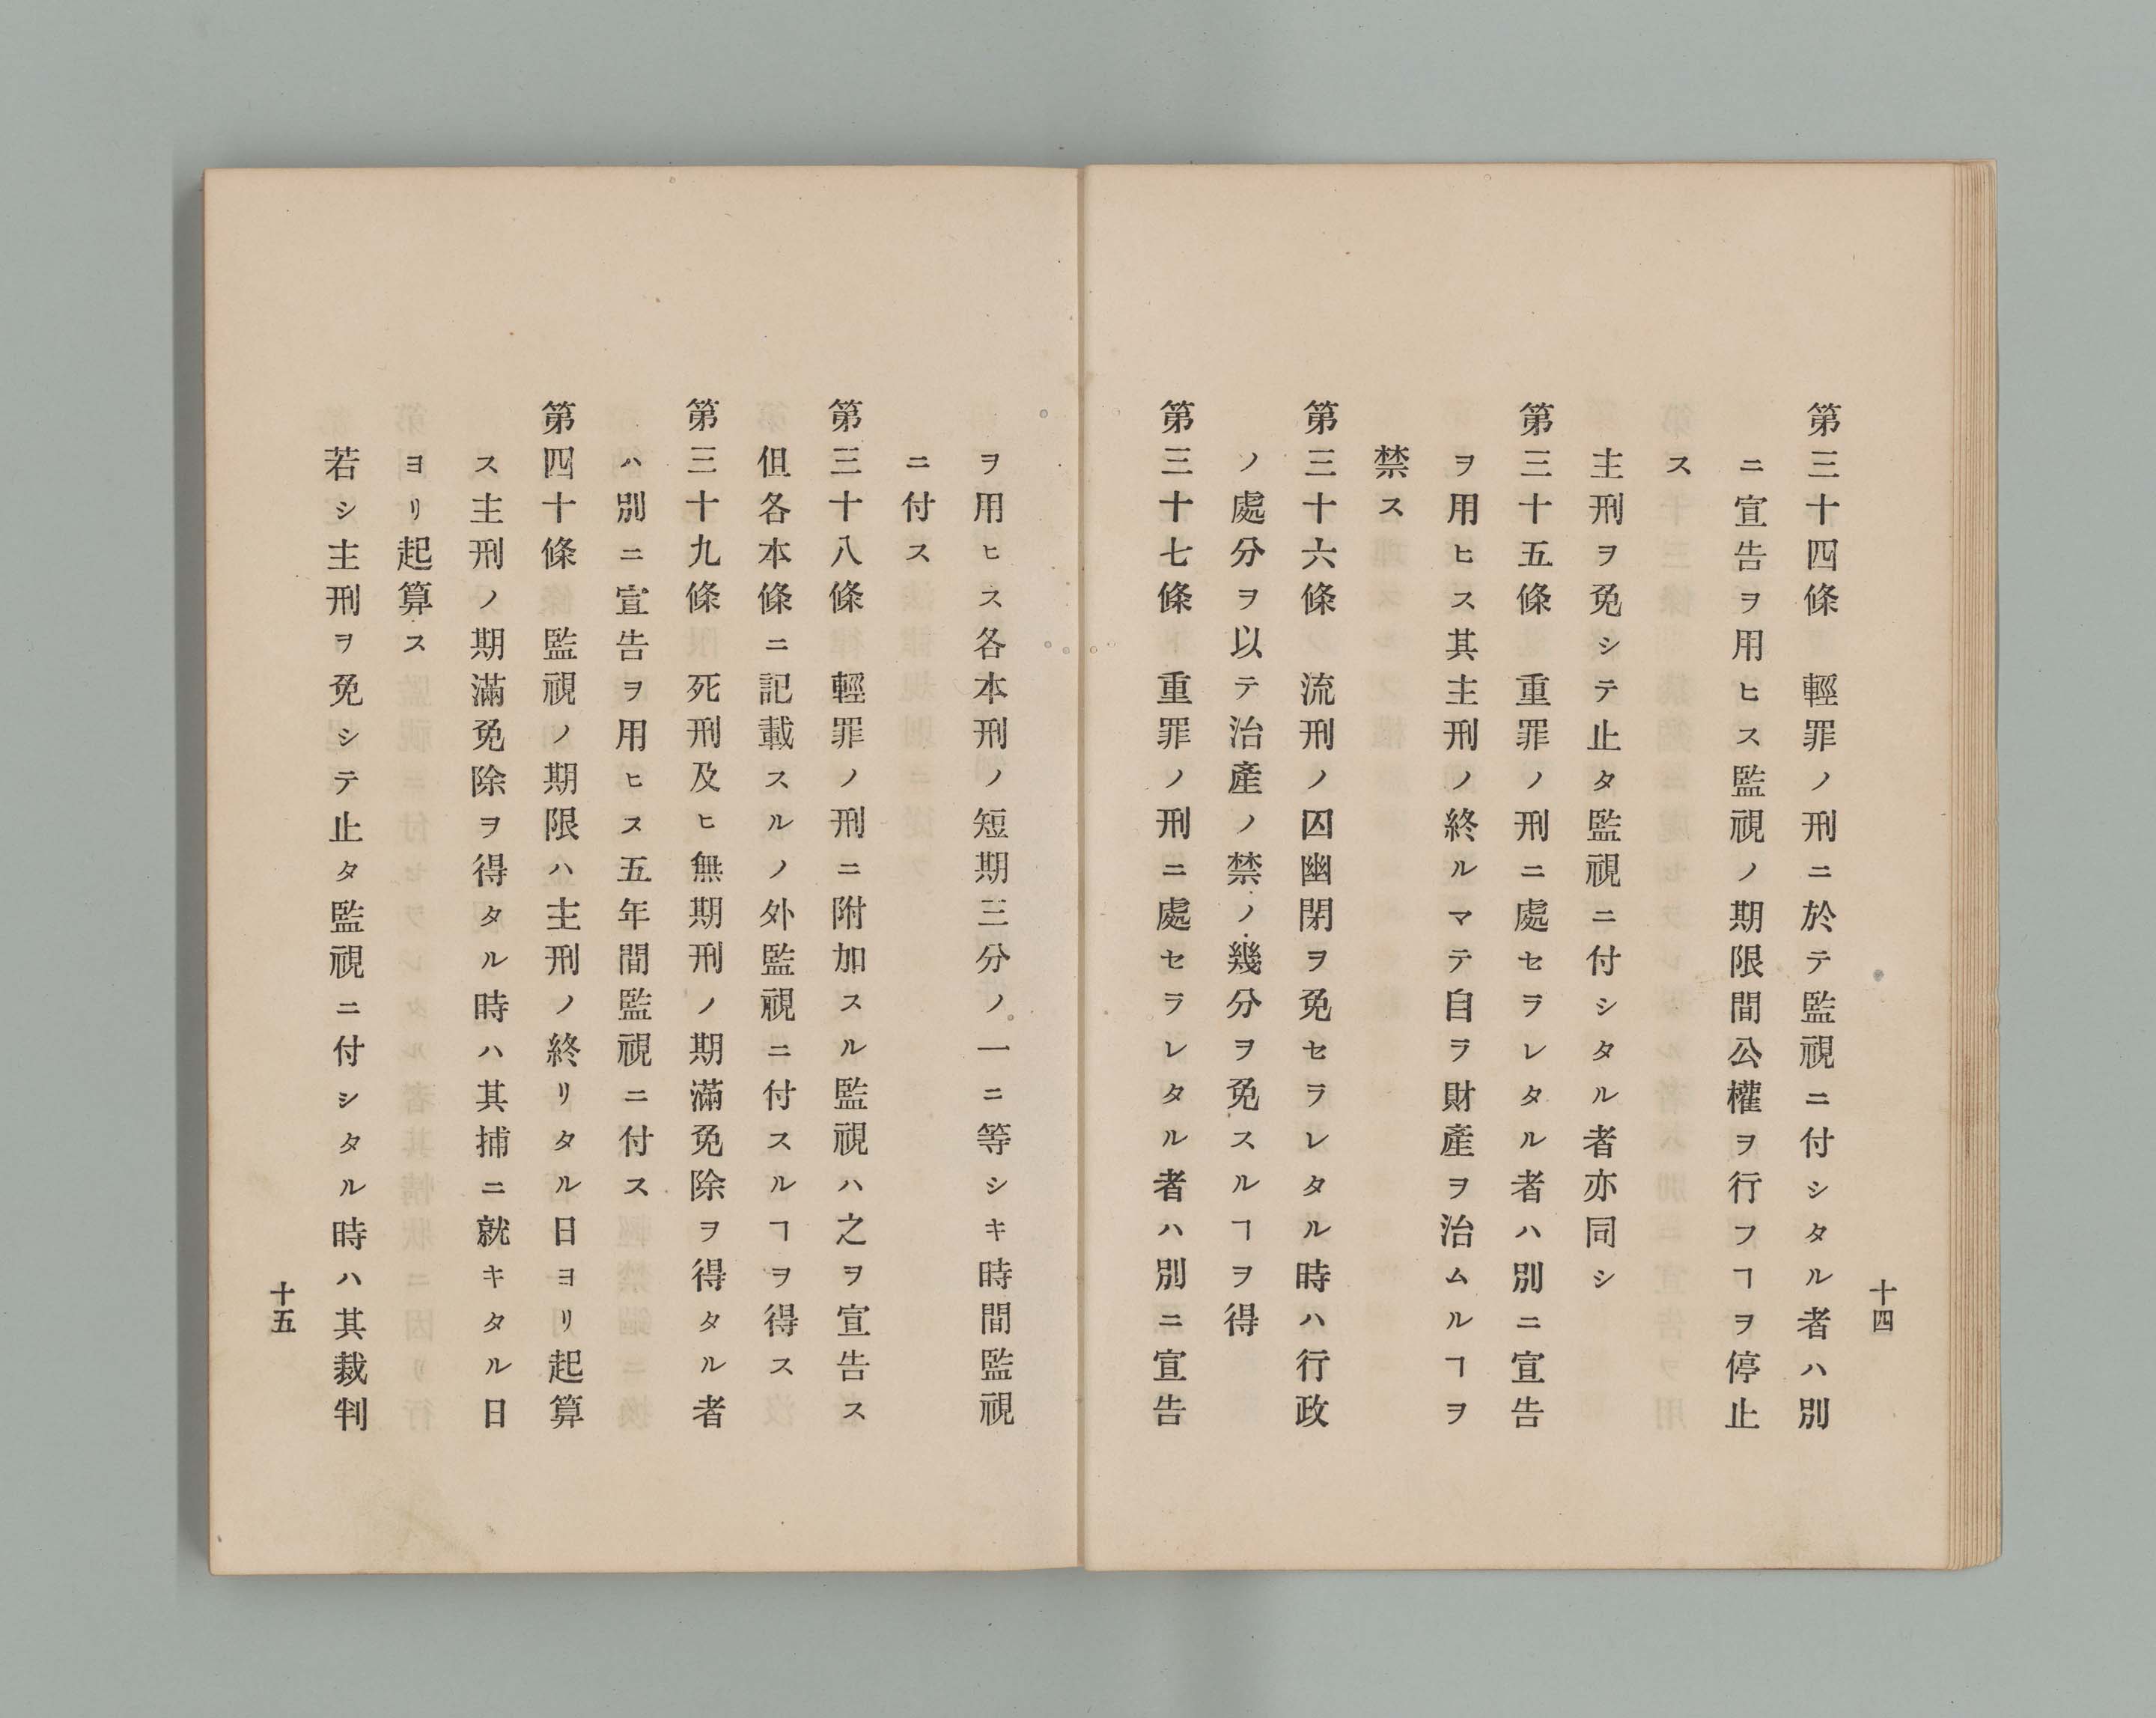 十四
第三十四條　輕罪ノ刑ニ於テ監視ニ付シタル者ハ別
ニ宣告ヲ用ヒス監視ノ期限間公權ヲ行フヿヲ停止
ス
主刑ヲ免シテ止タ監視ニ付シタル者亦同シ
第三十五條　重罪ノ刑ニ處セラレタル者ハ別ニ宣告
ヲ用ヒス其主刑ノ終ルマテ自ラ財產ヲ治ムルヿヲ
禁ス
第三十六條　流刑ノ囚幽閉ヲ免セラレタル時ハ行政
ノ處分ヲ以テ治產ノ禁ノ幾分ヲ免スルヿヲ得
第三十七條　重罪ノ刑ニ處セラレタル者ハ別ニ宣告
ヲ用ヒス各本刑ノ短期三分ノ一ニ等シキ時間監視
ニ付ス
第三十八條　輕罪ノ刑ニ附加スル監視ハ之ヲ宣告ス
但各本條ニ記載スルノ外監視ニ付スルヿヲ得ス
第三十九條　死刑及ヒ無期刑ノ期滿免除ヲ得タル者
ハ別ニ宣告ヲ用ヒス五年間監視ニ付ス
第四十條　監視ノ期限ハ主刑ノ終リタル日ヨリ起算
ス主刑ノ期滿免除ヲ得タル時ハ其捕ニ就キタル日
ヨリ起算ス
若シ主刑ヲ免シテ止タ監視ニ付シタル時ハ其裁判
十五